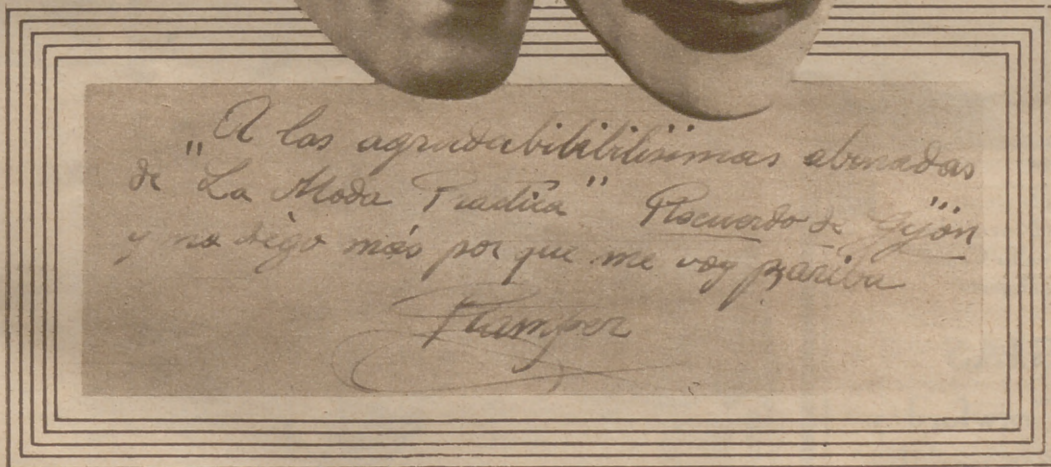 A las agradabilibilibilisimas abonadas
de "La Moda Practica" Recuerdo de Gijón
y no digo más por que me voy pzariba
Ramper